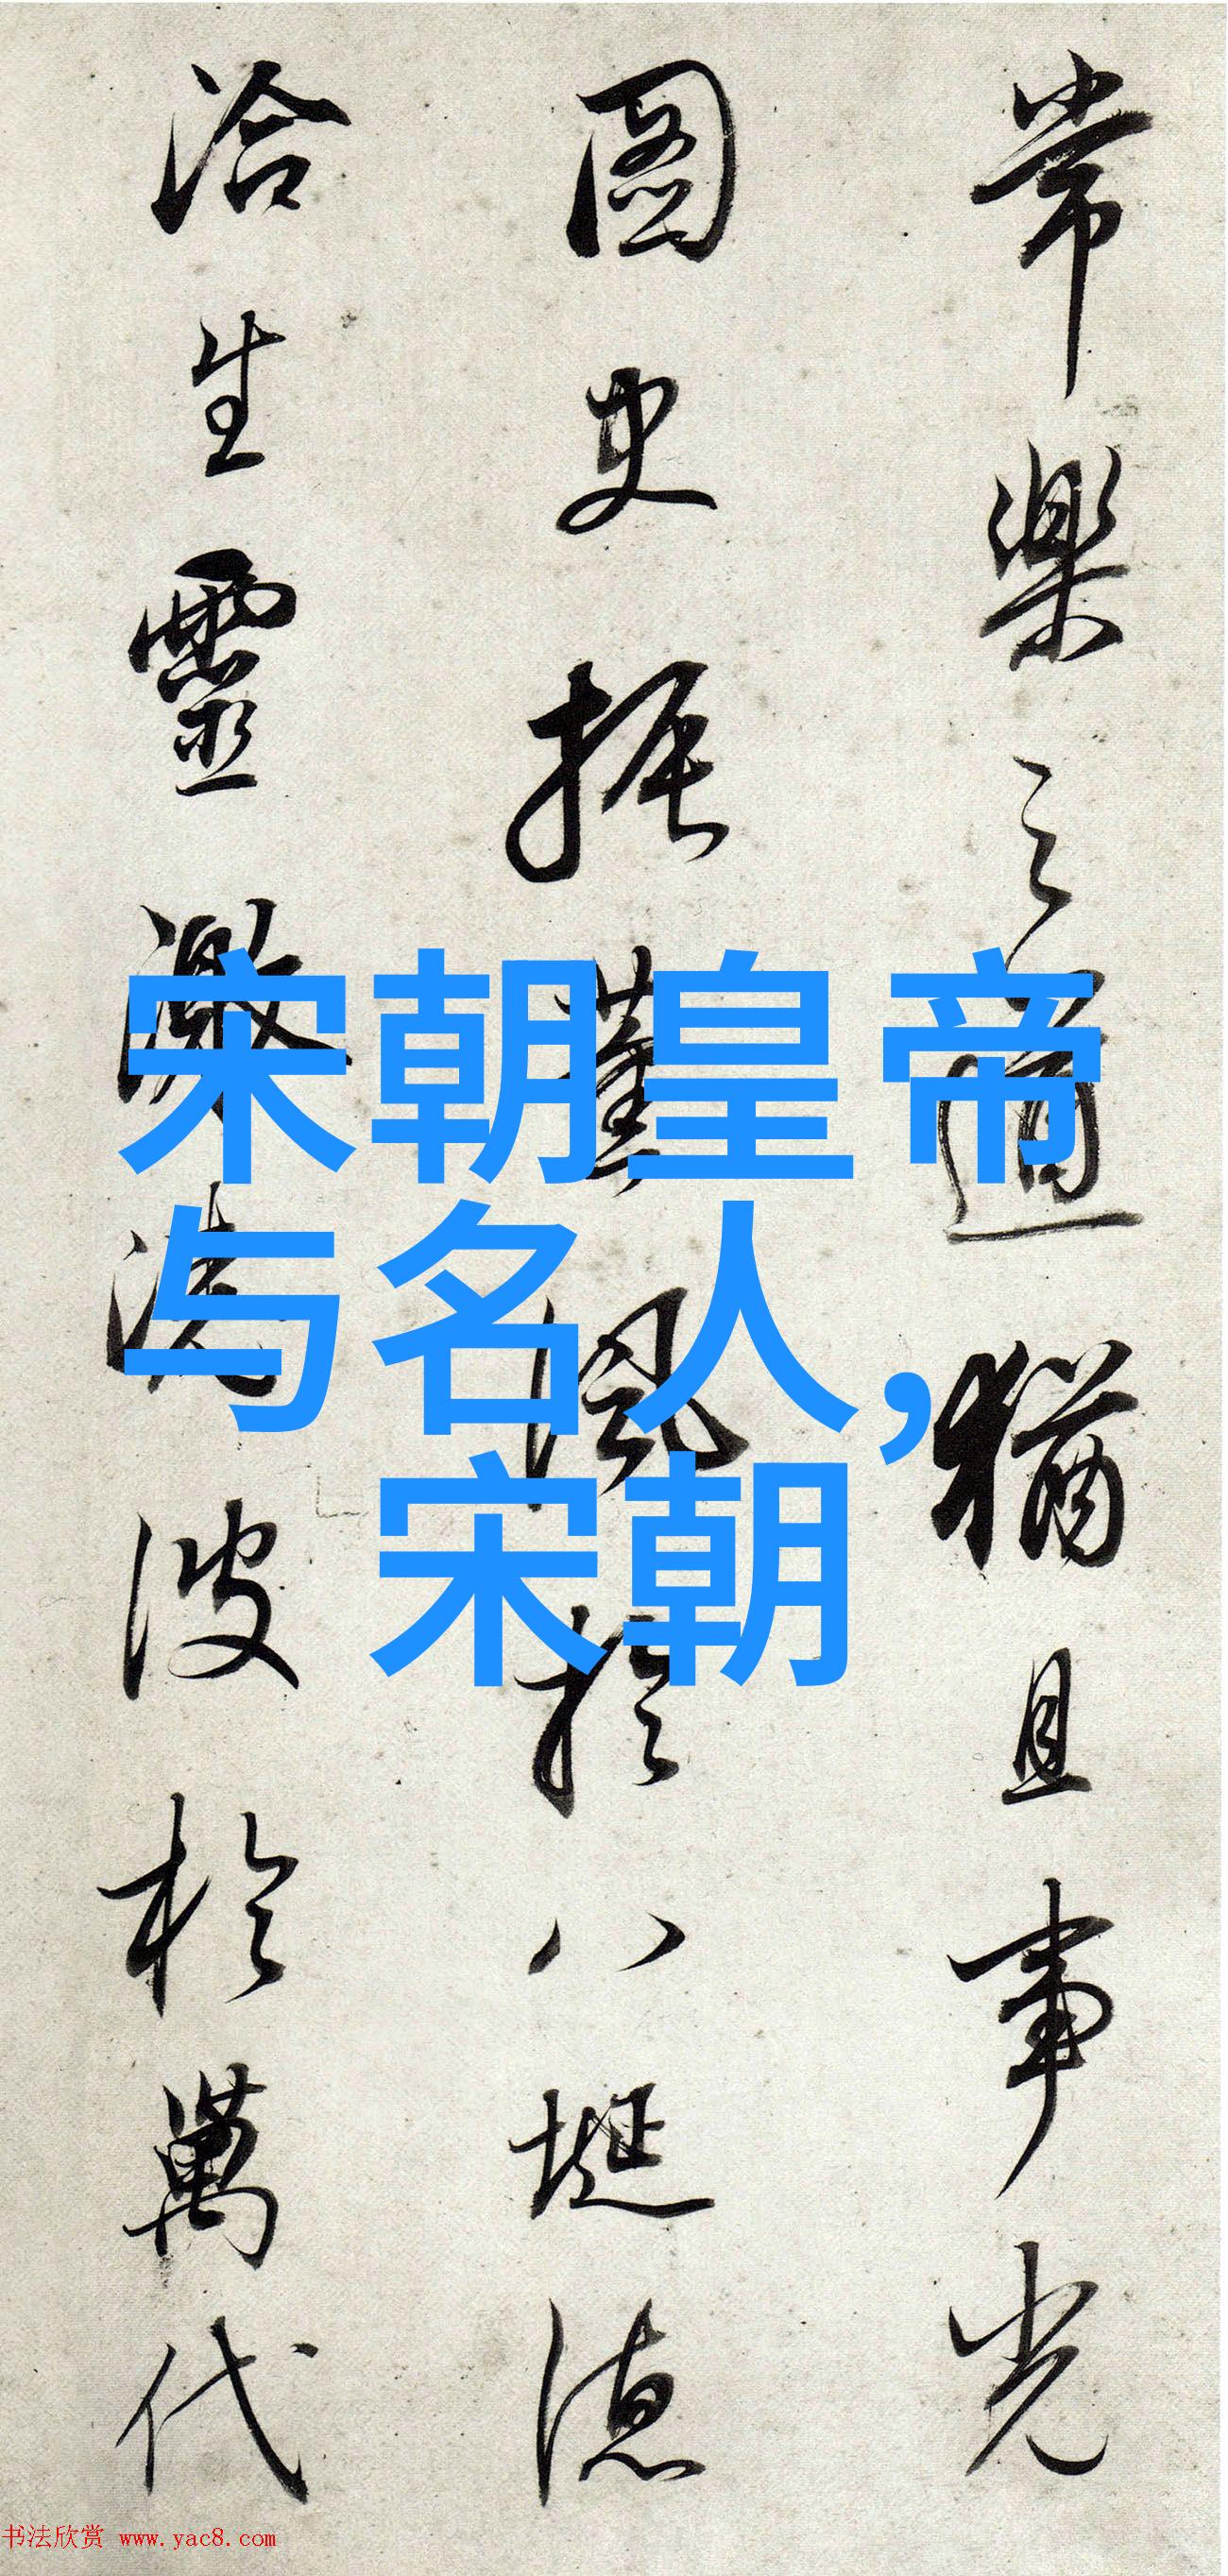 常樂之道猶且事光
圖史振風於八埏德
洽生靈激波於萬代
宋朝皇帝
与名人,
宋朝
书法欣赏 www.yac8.com